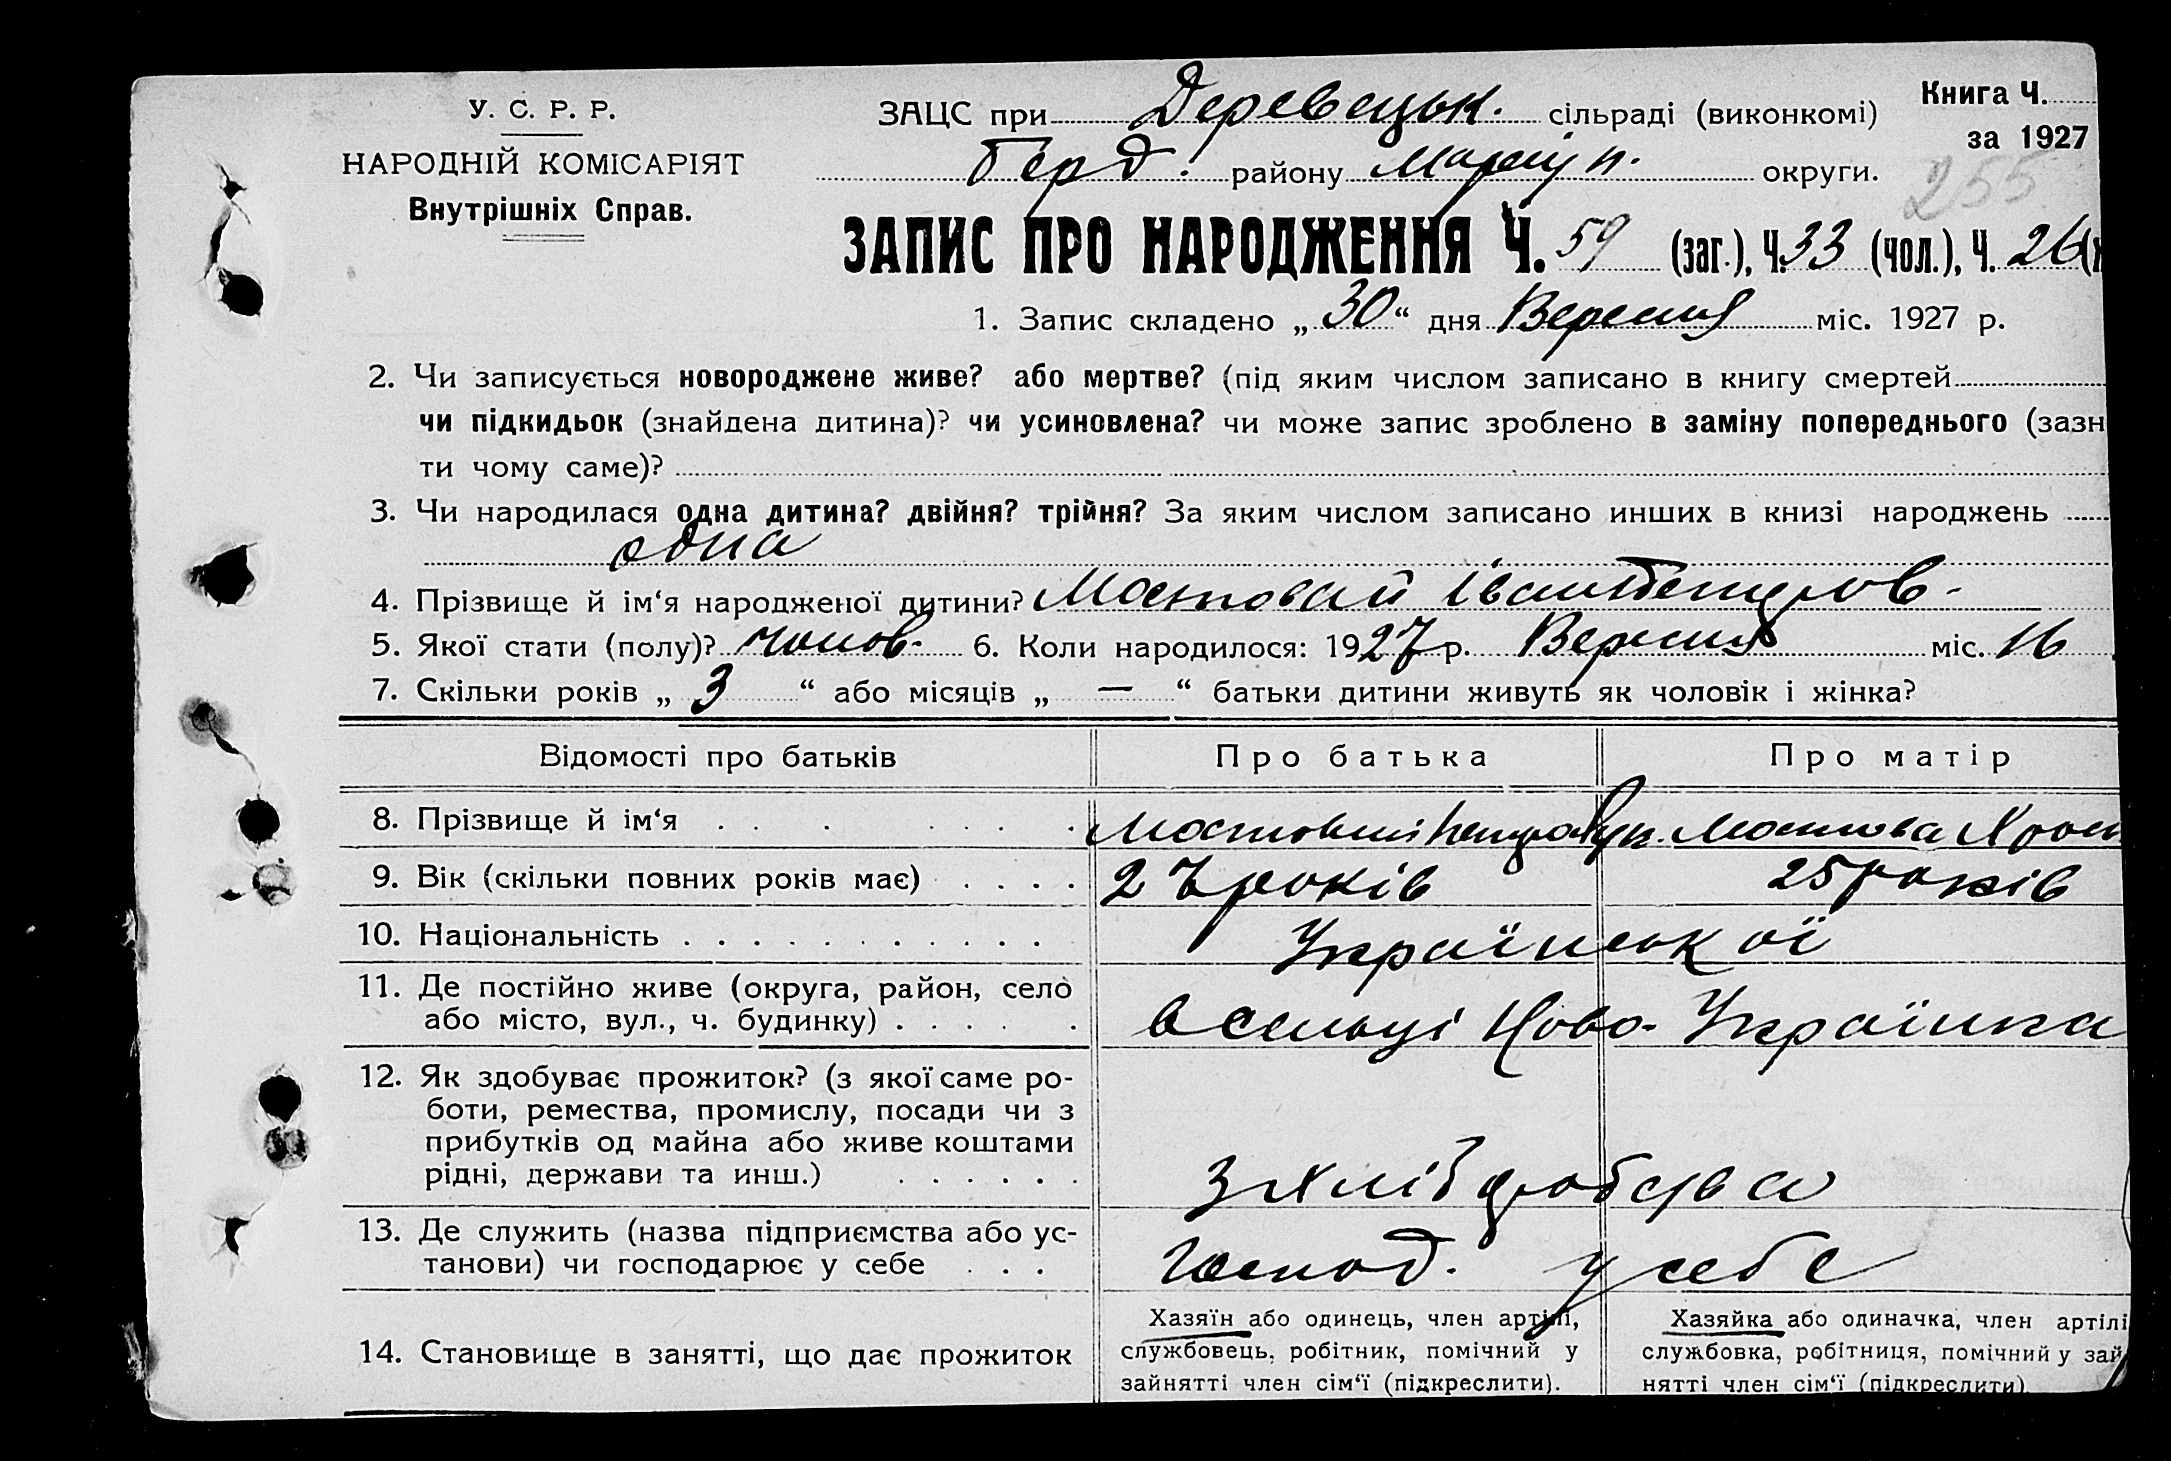 У. С. Р. Р.
НАРОДНІЙ КОМІСАРІЯТ
Внутрішніх Справ.
ЗАЦС при Деревецьк. сільраді (виконкомі)
Берд. району Маріуп. округи.
Книга Ч.
за 1927
255
ЗАПИС ПРО НАРОДЖЕННЯ Ч. 59 (заг.), Ч. 33 (чол.), Ч. 26
1. Запис складено „ 30 “ дня Вересня міс. 1927 р.
2. Чи записується новороджене живе? або мертве? (під яким числом записано в книгу смертей
чи підкидьок (знайдена дитина)? чи усиновлена? чи може запис зроблено в заміну попереднього (зазн
ти чому саме)?
3. Чи народилася одна дитина? двійня? трійня? За яким числом записано инших в книзі народжень
одна
4. Прізвище й ім‘я народженої дитини? Мостовий Іван Петров.
5. Якої стати (полу)? чолов. 6. Коли народилося: 1927 р. Вересня міс. 16
7. Скільки років „ 3 “ або місяців „ — “ батьки дитини живуть як чоловік і жінка?
Відомості про батьків Про батька Про матір
8. Прізвище й ім‘я Мостовий Петро Мостова
9. Вік (скільки повних років має) 27 років 25 років
10. Національність Української
11. Де постійно живе (округа, район, село
або місто, вул., ч. будинку) в сельці Ново-Українка
12. Як здобуває прожиток? (з якої саме ро-
боти, ремества, промислу, посади чи з
прибутків од майна або живе коштами
рідні, держави та инш.) З хлібробства
13. Де служить (назва підприємства або ус-
танови) чи господарює у себе Господ. у себе
14. Становище в занятті, що дає прожиток
Хазяїн або одинець, член артілі,
службовець, робітник, помічний у
зайнятті член сім‘ї (підкреслити).
Хазяйка або одиначка, член артілі
службовка, робітниця, помічний у зай
нятті член сім‘ї (підкреслити)